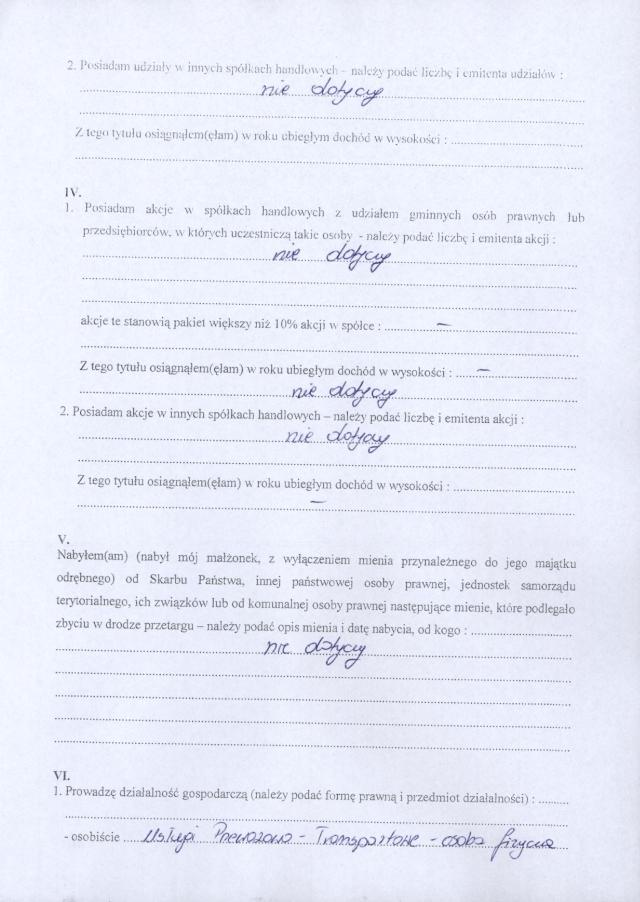 2. Posiadam udziały w innych spółkach handlowych – należy podać liczbę i emitenta udziałów :
nie dotyczy
Z tego tytułu osiągnąłem(ęłam) w roku ubiegłym dochód w wysokości :
IV.
1. Posiadam akcje w spółkach handlowych z udziałem gminnych osób prawnych lub
przedsiębiorców, w których uczestniczą takie osoby - należy podać liczbę i emitenta akcji :
nie dotyczy
akcje te stanowią pakiet większy niż 10% akcji w spółce : —
Z tego tytułu osiągnąłem(ęłam) w roku ubiegłym dochód w wysokości : —
nie dotyczy
2. Posiadam akcje w innych spółkach handlowych – należy podać liczbę i emitenta akcji :
nie dotyczy
Z tego tytułu osiągnąłem(ęłam) w roku ubiegłym dochód w wysokości :
—
V.
Nabyłem(am) (nabył mój małżonek, z wyłączeniem mienia przynależnego do jego majątku
odrębnego) od Skarbu Państwa, innej państwowej osoby prawnej, jednostek samorządu
terytorialnego, ich związków lub od komunalnej osoby prawnej następujące mienie, które podlegało
zbyciu w drodze przetargu – należy podać opis mienia i datę nabycia, od kogo :
nie dotyczy
VI.
1. Prowadzę działalność gospodarczą (należy podać formę prawną i przedmiot działalności) :
- osobiście Usługi Przewozowo - Transportowe - osoba fizyczna